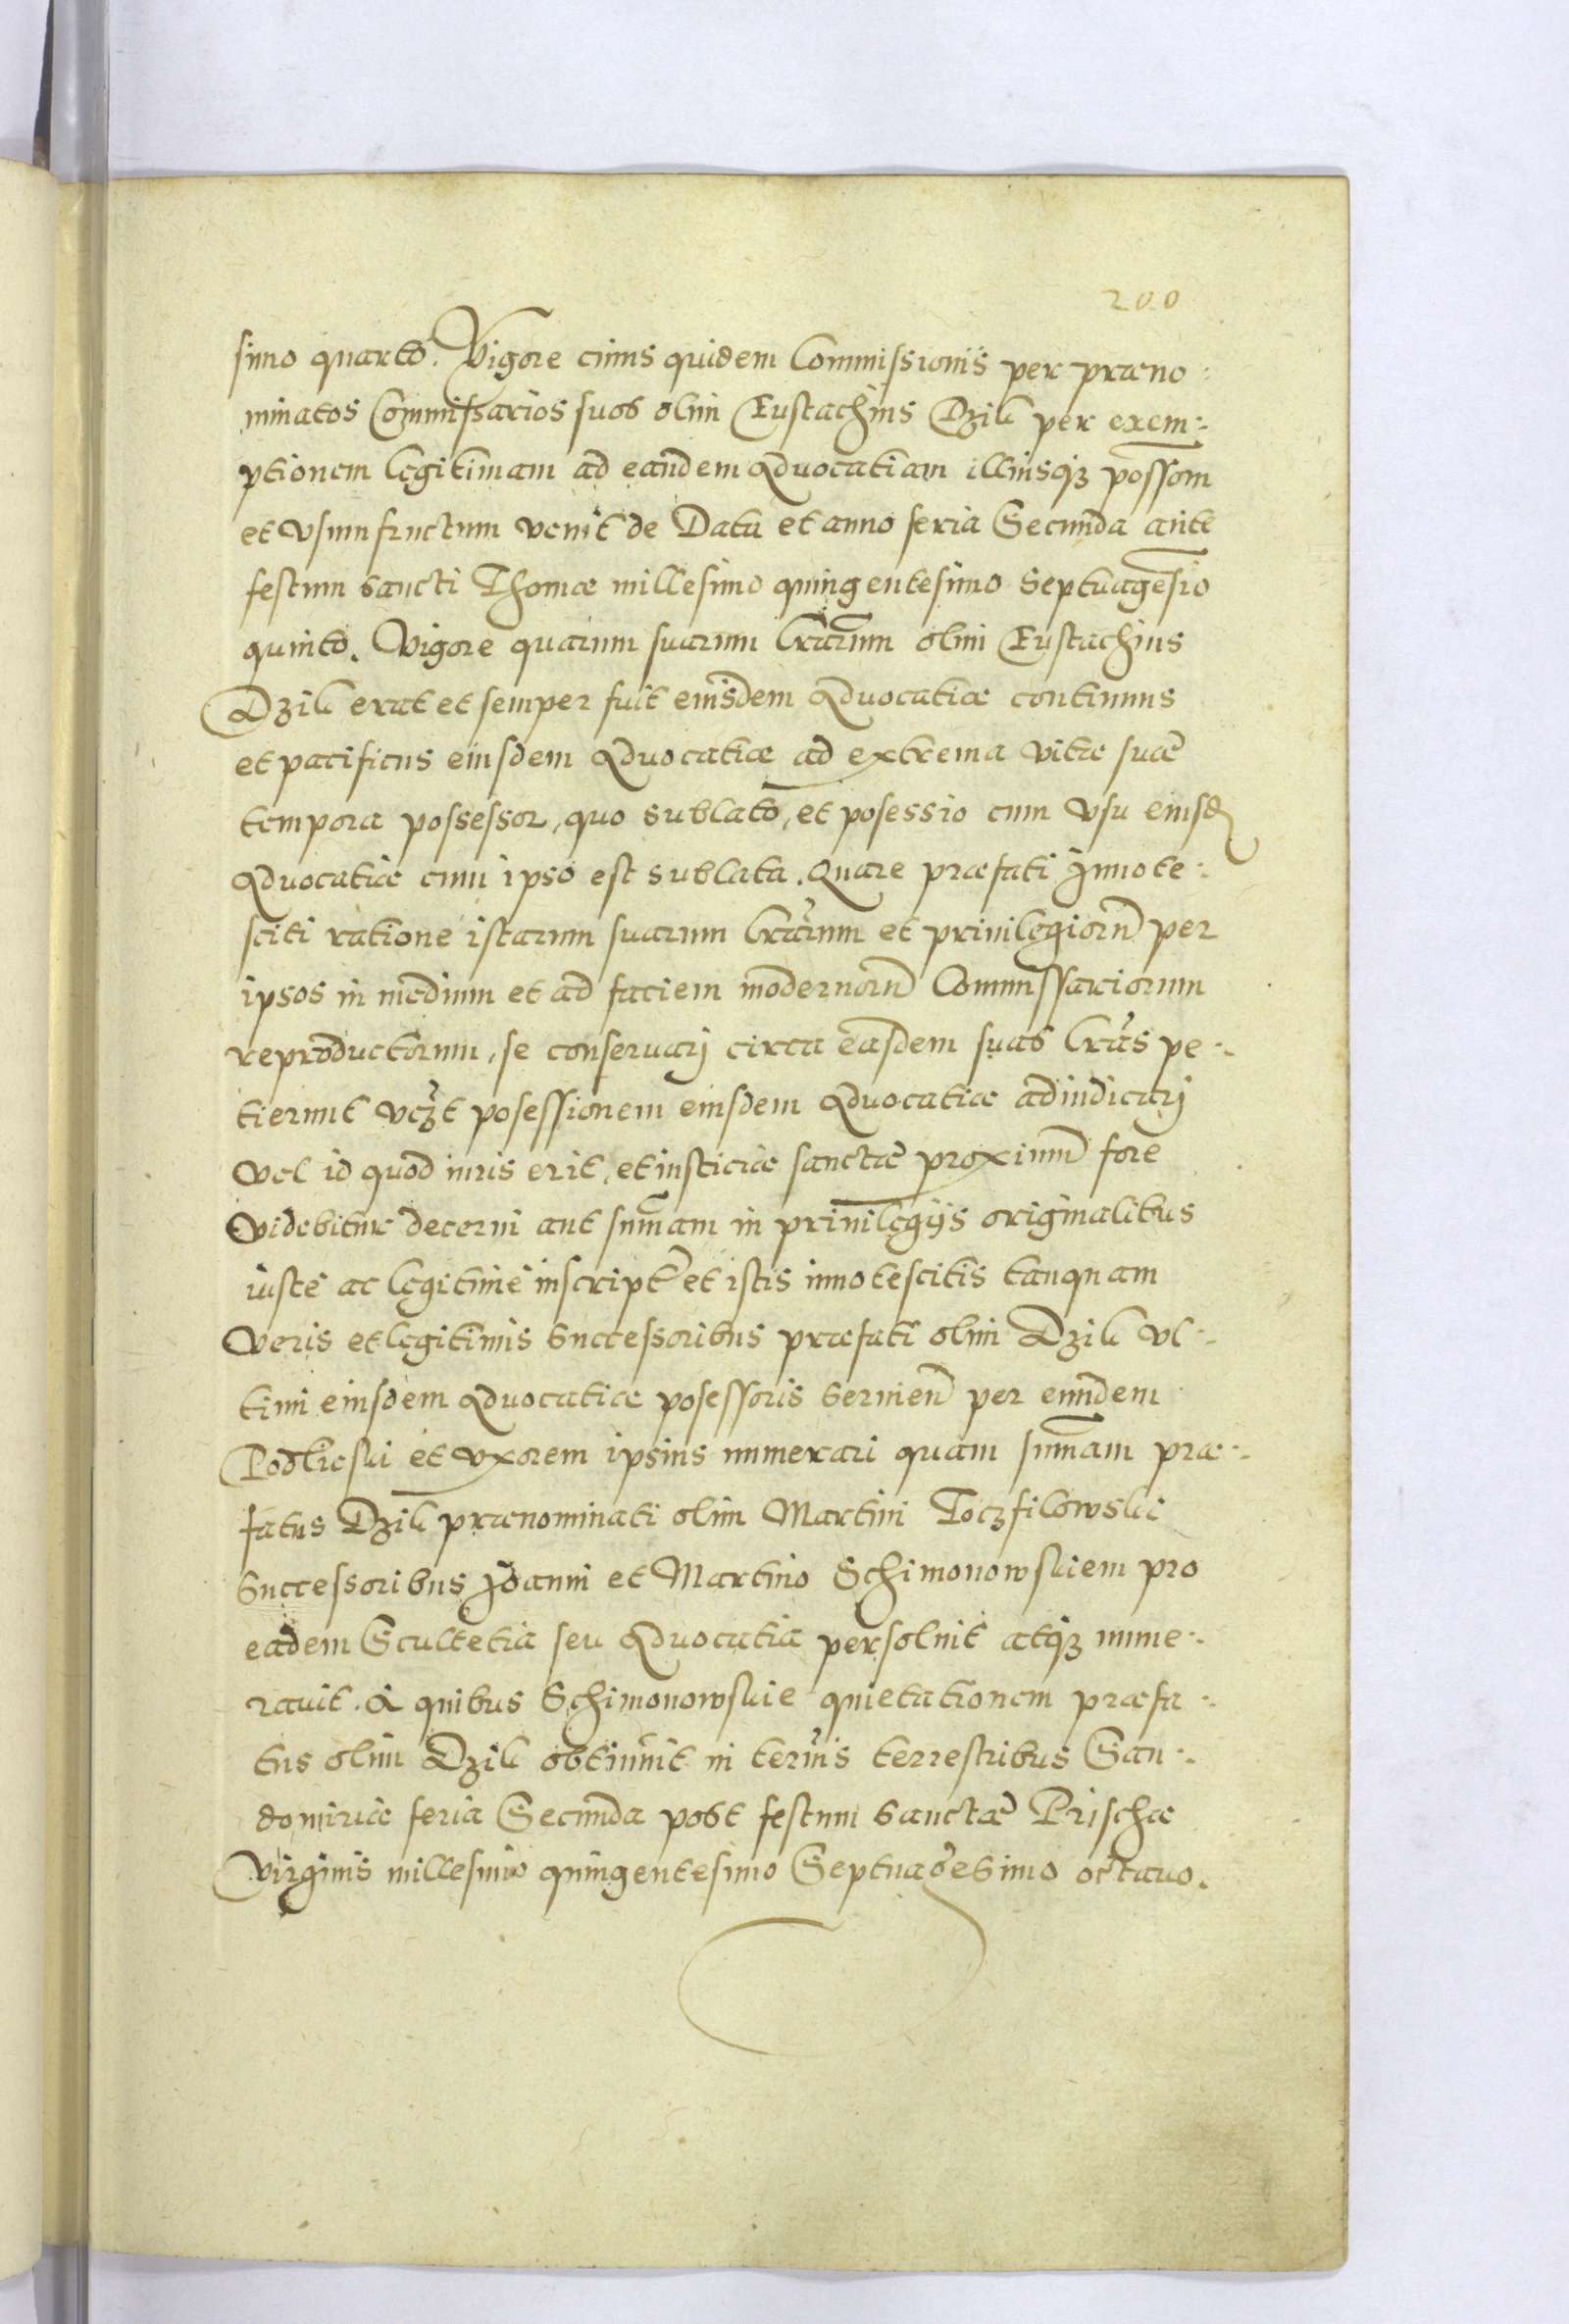 200
simo quarto. Vigore cuius quidem Commissionis per præno:
minatos Commissarios suos olim Eustachius Dzik per exem:
ptionem legitimam ad eandem Aduocatiam illiusqȝ possom
et vsumfructum venit de Data et anno feria Secunda ante
festum sancti Thomæ millesimo quingentesimo septuagesio
quinto. Vigore quarum suarum lrarum olim Eustachius
Dzik erat et semper fuit eiusdem Aduocatiæ continuus
et pacificus eiusdem Aduocatiæ ad extrema vitæ suæ
tempora possessor, quo sublato, et posessio cum vsu eiusd
Aduocatiæ cum ipso est sublata. Quare præfati Innote:
sciti ratione istarum suarum lrarum et priuilegiorū per
ipsos in medium et ad faciem modernorū Commissariorum
reproductorum, se conseruarj circa easdem suas lras pe:
tierunt vczt posessionem eiusdem Aduocatiæ adiudicarj
vel id quod iuris erit, et iusticiæ sanctæ proximū fore
videbitur decerni aut sumam in priuilegijs originalibus
iustè ac legitimè inscript et istis innotescitis tanquam
veris et legitimis successoribus præfati olim Dzik vl:
timi eiusdem Aduocatiæ posessoris seruien per eundem
Podlieski et vxorem ipsius numerari quam sumam præ:
fatus Dzik prænominati olim Martini Toczfilowski
successoribus Joanni et Martino Schimonowskiem pro
eadem Scultetia seu Aduocatia persoluit atqȝ nume:
rauit. A quibus Schimonowskie quietationem præfa:
tus olim Dzik obtinuit in termis terrestribus San:
domiriæ feria Secunda post festum sanctæ Prischæ
Virginis millesimo quingentesimo Septuagesimo octauo.